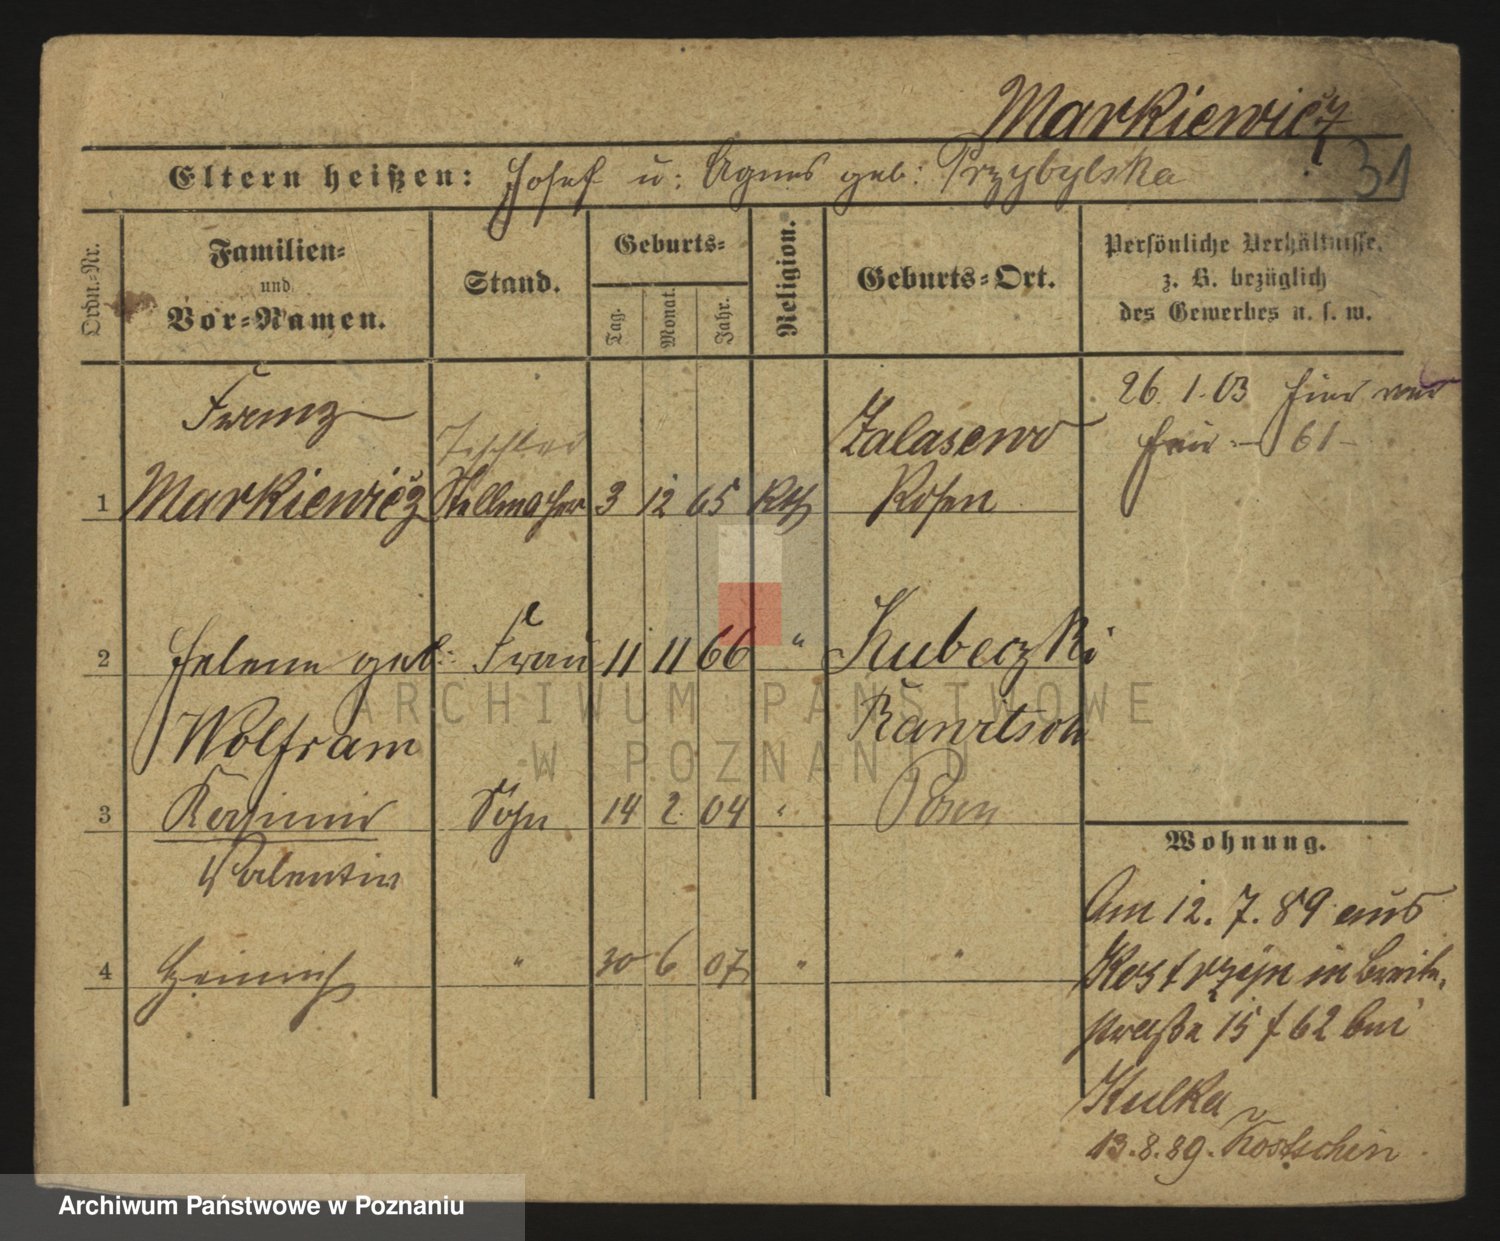 Markiewicz
31
Eltern heißen: Josef u: Agnes geb: Przybylska
Ordn.-Nr.
Familien-
und
Vor-Namen.
Stand.
Geburts-
Tag.
Monat.
Jahr.
Religion.
Geburts-Ort.
Persönliche Verhältnisse,
z. B. bezüglich
des Gewerbes u. s. w.
Franz Tischler Zalasewo
1 Markiewicz Stellmacher 3 12 65 Kth Posen
26. 1. 03 hier
61
2 Helene geb: Frau 11 11 66 " Kubeczki
Wolfram Rawitsch
3 Kasimir Sohn 14 2. 04 " Posen
Valentin
4 Heinrich " 30 6 07 " "
Wohnung.
Am 12. 7. 89 aus
Kostrzyn in Breite-
straße 15 f 62 bei
Kulka
13. 8. 89. Kostschin
ARCHIWUM PAŃSTWOWE
W POZNANIU
Archiwum Państwowe w Poznaniu